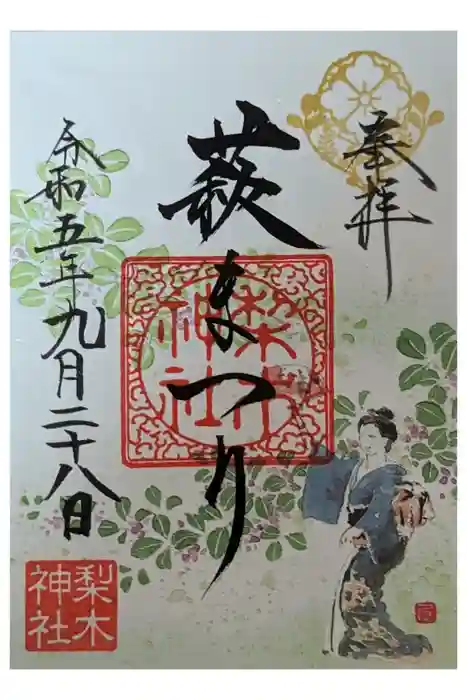 奉拝
萩まつり
梨木神社
令和五年九月二十八日
梨木神社